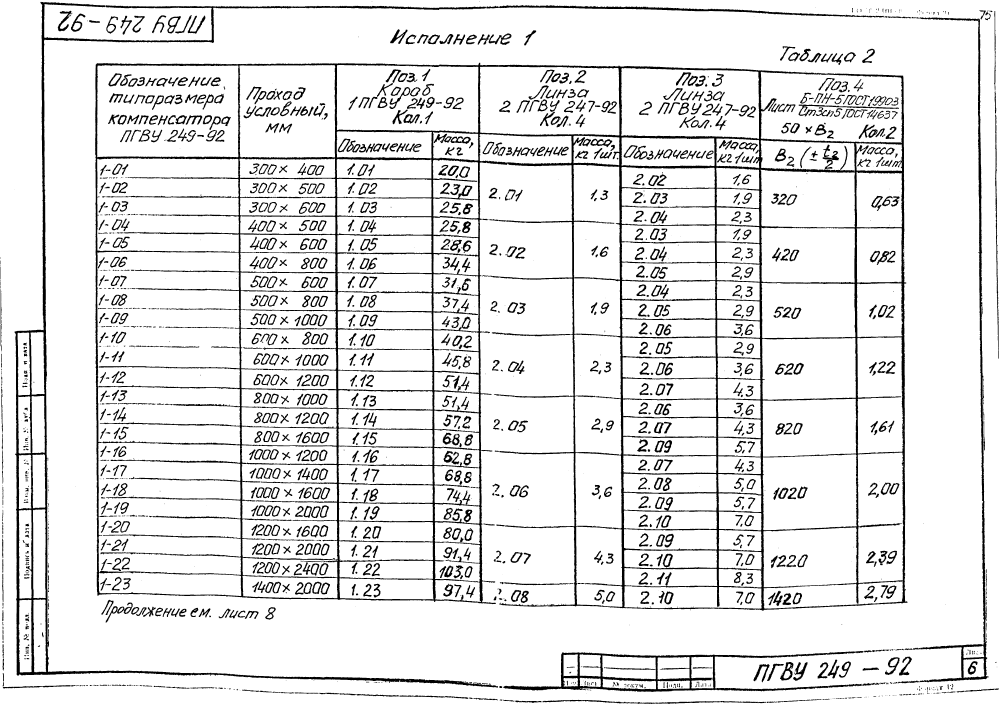 75
ПГВУ 249-92
Исполнение 1
Таблица 2
Обозначение типоразмера компенсатора ПГВУ 249-92
Проход условный, мм
Поз. 1 Короб 1 ПГВУ 249-92 Кол. 1
Поз. 2 Линза 2 ПГВУ 247-92 Кол. 4
Поз. 3 Линза 2 ПГВУ 247-92 Кол. 4
Поз. 4
Лист Б-ПН-5 ГОСТ 19903 / Ст3сп5 ГОСТ 14637
50 × B2 Кол. 2
Обозначение Масса, кг Обозначение Масса, кг 1шт. Обозначение Масса, кг 1шт B2 (± t2/2) Масса, кг 1шт
1-01 300 × 400 1.01 20,0 2.01 1,3 2.02 1,6 320 0,63
1-02 300 × 500 1.02 23,0 2.03 1,9
1-03 300 × 600 1.03 25,8 2.04 2,3
1-04 400 × 500 1.04 25,8 2.02 1,6 2.03 1,9 420 0,82
1-05 400 × 600 1.05 28,6 2.04 2,3
1-06 400 × 800 1.06 34,4 2.05 2,9
1-07 500 × 600 1.07 31,6 2.03 1,9 2.04 2,3 520 1,02
1-08 500 × 800 1.08 37,4 2.05 2,9
1-09 500 × 1000 1.09 43,0 2.06 3,6
1-10 600 × 800 1.10 40,2 2.04 2,3 2.05 2,9 620 1,22
1-11 600 × 1000 1.11 45,8 2.06 3,6
1-12 600 × 1200 1.12 51,4 2.07 4,3
1-13 800 × 1000 1.13 51,4 2.05 2,9 2.06 3,6 820 1,61
1-14 800 × 1200 1.14 57,2 2.07 4,3
1-15 800 × 1600 1.15 68,8 2.09 5,7
1-16 1000 × 1200 1.16 62,8 2.06 3,6 2.07 4,3 1020 2,00
1-17 1000 × 1400 1.17 68,8 2.08 5,0
1-18 1000 × 1600 1.18 74,4 2.09 5,7
1-19 1000 × 2000 1.19 85,8 2.10 7,0
1-20 1200 × 1600 1.20 80,0 2.07 4,3 2.09 5,7 1220 2,39
1-21 1200 × 2000 1.21 91,4 2.10 7,0
1-22 1200 × 2400 1.22 103,0 2.11 8,3
1-23 1400 × 2000 1.23 97,4 2.08 5,0 2.10 7,0 1420 2,79
Продолжение см. лист 8
ПГВУ 249-92
Лист
6
№ докум. Подп. Дата
Формат 12